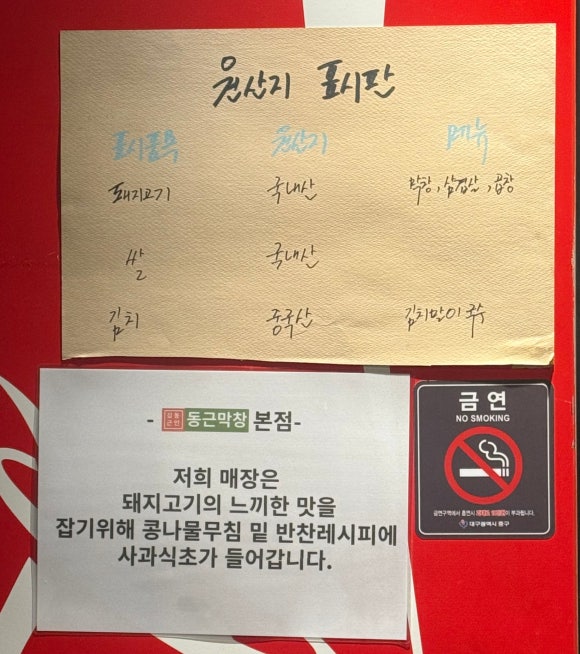 원산지 표시판
표시품목 원산지 메뉴
돼지고기 국내산 막창, 삼겹살, 곱창
쌀 국내산
김치 중국산 김치말이 국수
- 동근막창 본점-
저희 매장은
돼지고기의 느끼한 맛을
잡기위해 콩나물무침 밑 반찬레시피에
사과식초가 들어갑니다.
금연
NO SMOKING
금연구역에서 흡연시 부과됩니다.
대구광역시 중구